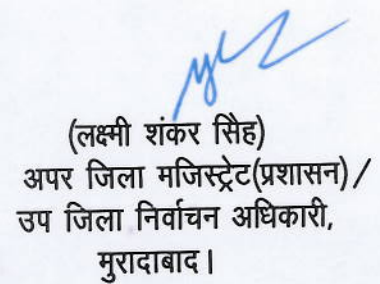 (लक्ष्मी शंकर सिंह)
अपर जिला मजिस्ट्रेट(प्रशासन)/
उप जिला निर्वाचन अधिकारी,
मुरादाबाद।